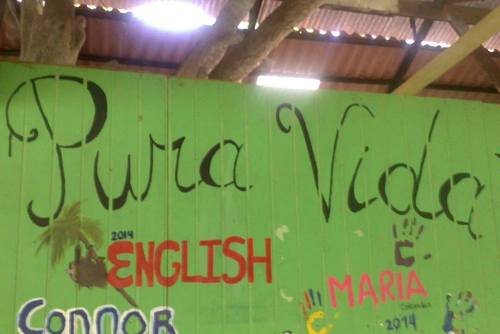 Pura Vida
2014
ENGLISH
MARIA
Colombia
2014
CONNOR